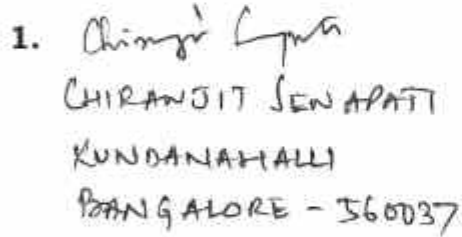 1.
CHIRANJIT SENAPATI
KUNDANAHALLI
BANGALORE - 560037